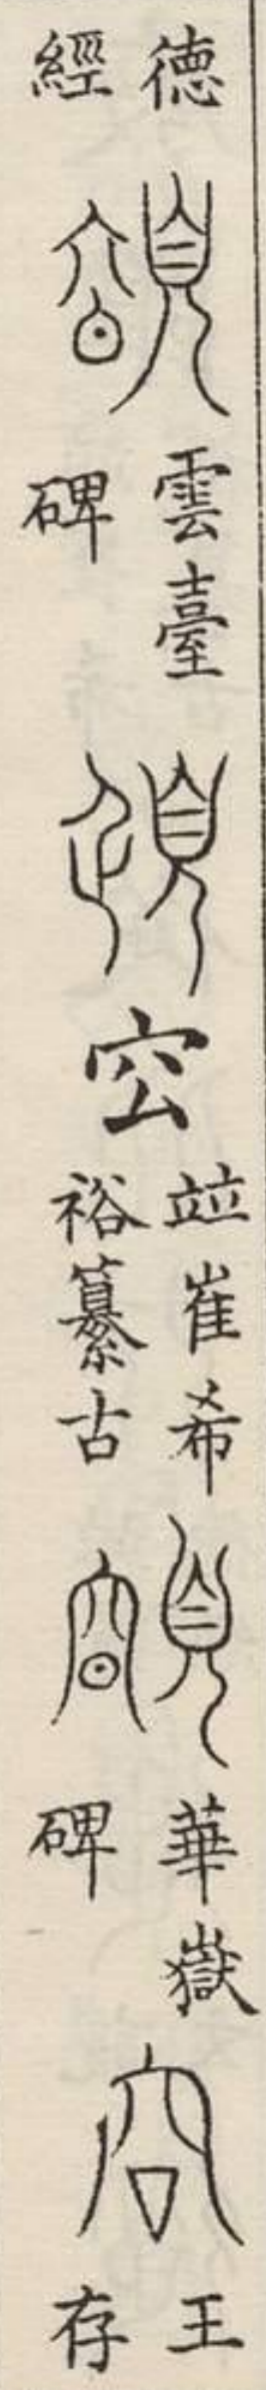 德
經
雲臺
碑
㝐
竝崔希
裕纂古
華嶽
碑
王
存